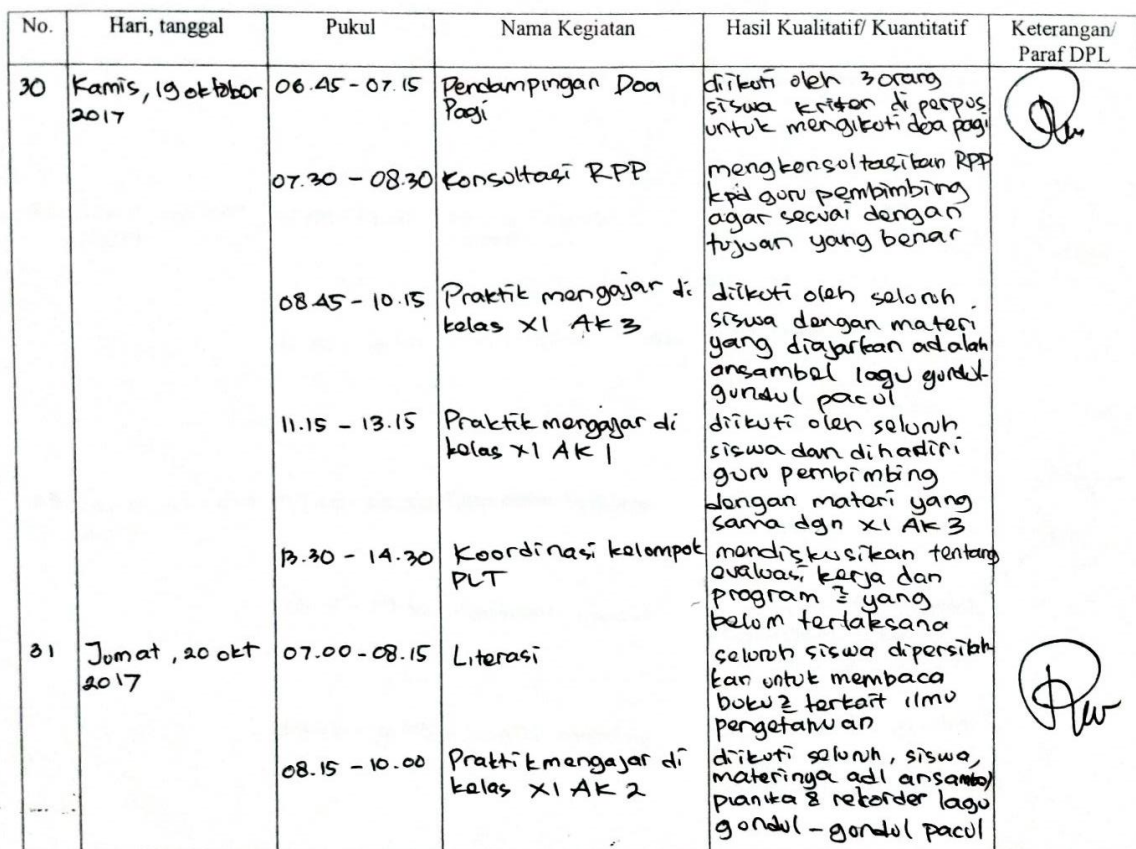 No. Hari, tanggal Pukul Nama Kegiatan Hasil Kualitatif/ Kuantitatif Keterangan/
Paraf DPL
30 Kamis, 19 oktober 06.45 - 07.15 Pendampingan Doa diikuti oleh 3 orang
2017 Pagi siswa kristen di perpus
untuk mengikuti doa pagi
07.30 - 08.30 Konsultasi RPP mengkonsultasikan RPP
kpd guru pembimbing
agar sesuai dengan
tujuan yang benar
08.45 - 10.15 Praktik mengajar di diikuti oleh seluruh
kelas XI AK 3 siswa dengan materi
yang diajarkan adalah
ansambel lagu gundul-
gundul pacul
11.15 - 13.15 Praktik mengajar di diikuti oleh seluruh
kelas XI AK 1 siswa dan dihadiri
guru pembimbing
dengan materi yang
sama dgn XI AK 3
13.30 - 14.30 Koordinasi kelompok mendiskusikan tentang
PLT evaluasi kerja dan
program 2 yang
belum terlaksana
31 Jumat, 20 okt 07.00 - 08.15 Literasi seluruh siswa dipersilah
2017 kan untuk membaca
buku 2 terkait ilmu
pengetahuan
08.15 - 10.00 Praktik mengajar di diikuti seluruh, siswa,
kelas XI AK 2 materinya adl ansambel
pianika & rekorder lagu
gundul - gundul pacul